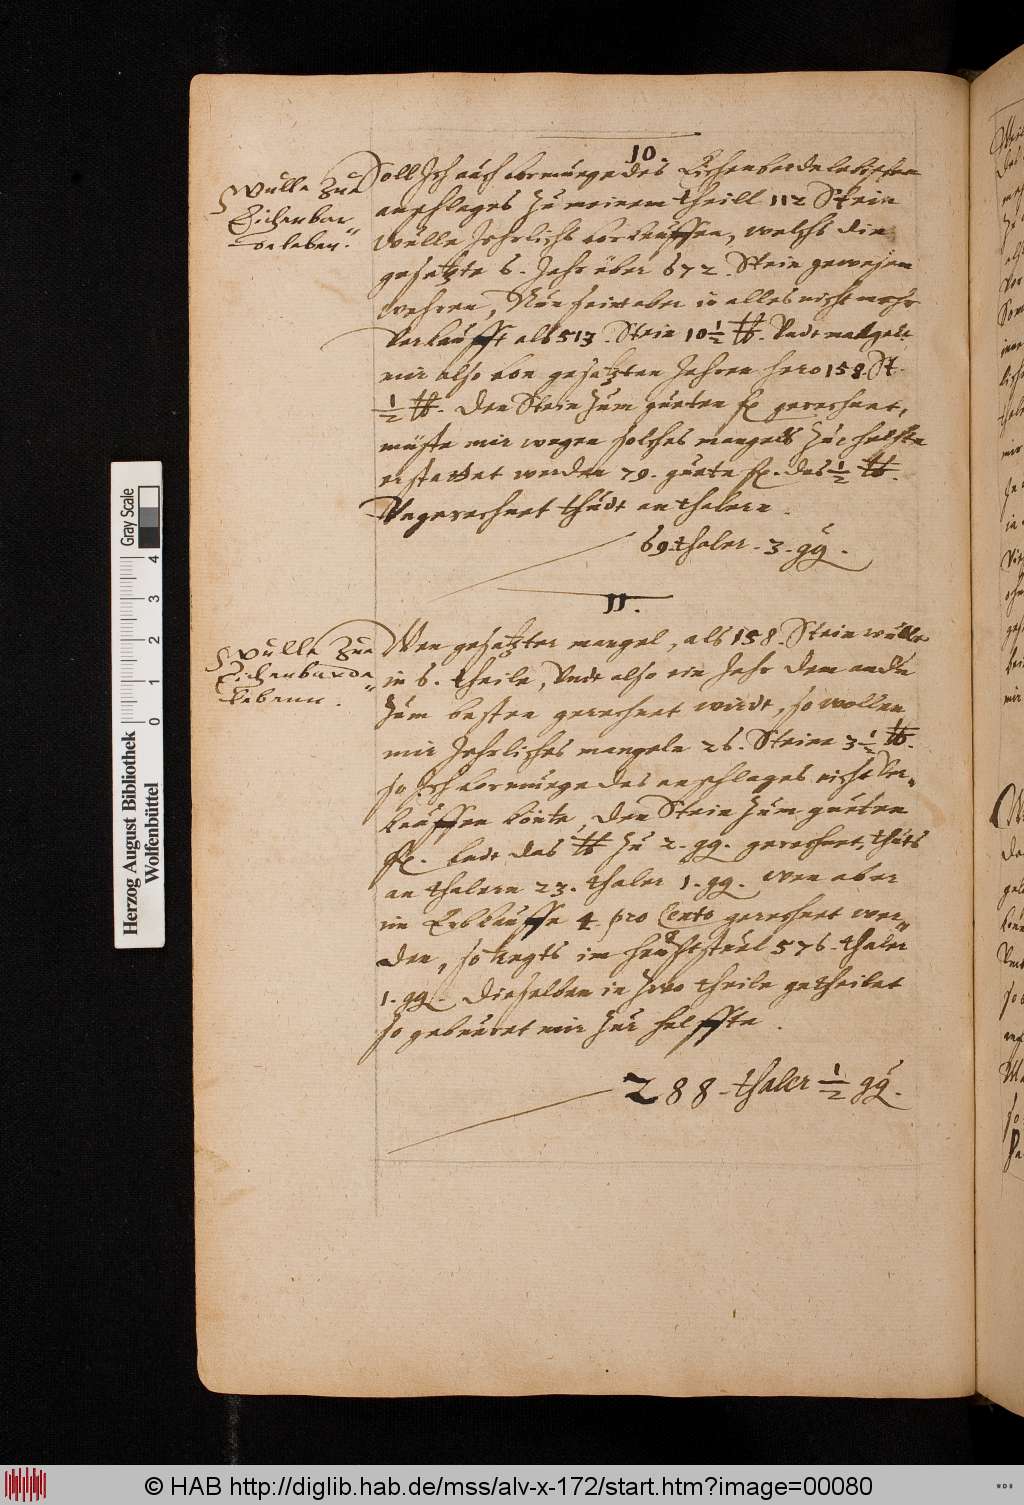 10.
Wulle Zue
Eichenbar
deleben.
Soll Ich auch vermuege des Eichenbardelebischen
anschlages Zu meinem theill 112 Stein
Wulle Jehrlichs verkauffen, welchs die
gesetzte 6. Jahr über 672. Stein gewesen
wehren, Nun sein aber in alles nicht mehr
Verkaufft als 513. Stein 10 1/2 ℔. Undt mangelt
mir also von gesetzten Jahren hero 158. St.
1/2 ℔. Den Stein Zum gueten fl gerechnet,
müste mir wegen solches mangels Zur helfte
erstattet werden 79. guete fl. das 1/2 ℔.
Ungerechnet thudt an thalern.
69. thaler. 3. gg.
11.
Wulle Zue
Eichenbarde
lebenn.
Wen gesetzter mangel, als 158. Stein wulle
in 6. theile, Undt also ein Jahr dem andern
Zum besten gerechnet wirdt, so wollen
mir Jehrliches mangeln 26. Stein 3 1/2 ℔.
so Ich vermuege des anschlages nicht Ver-
kauffen könte, Den Stein Zum gueten
fl. Undt das ℔ Zu 2. gg. gerechnet, thuts
an thalern 23. thaler 1. gg. wen aber
im Erbkauffe 4 pro Cento gerechnet wer-
den, so tregts im heuptstuel 576. thaler
1. gg. Dieselben in Zwo theile getheilet
so gebueret mir Zur helffte.
288. thaler 1/2 gg.
Herzog August Bibliothek
Wolfenbüttel
0 1 2 3 4
Gray Scale
© HAB http://diglib.hab.de/mss/alv-x-172/start.htm?image=00080